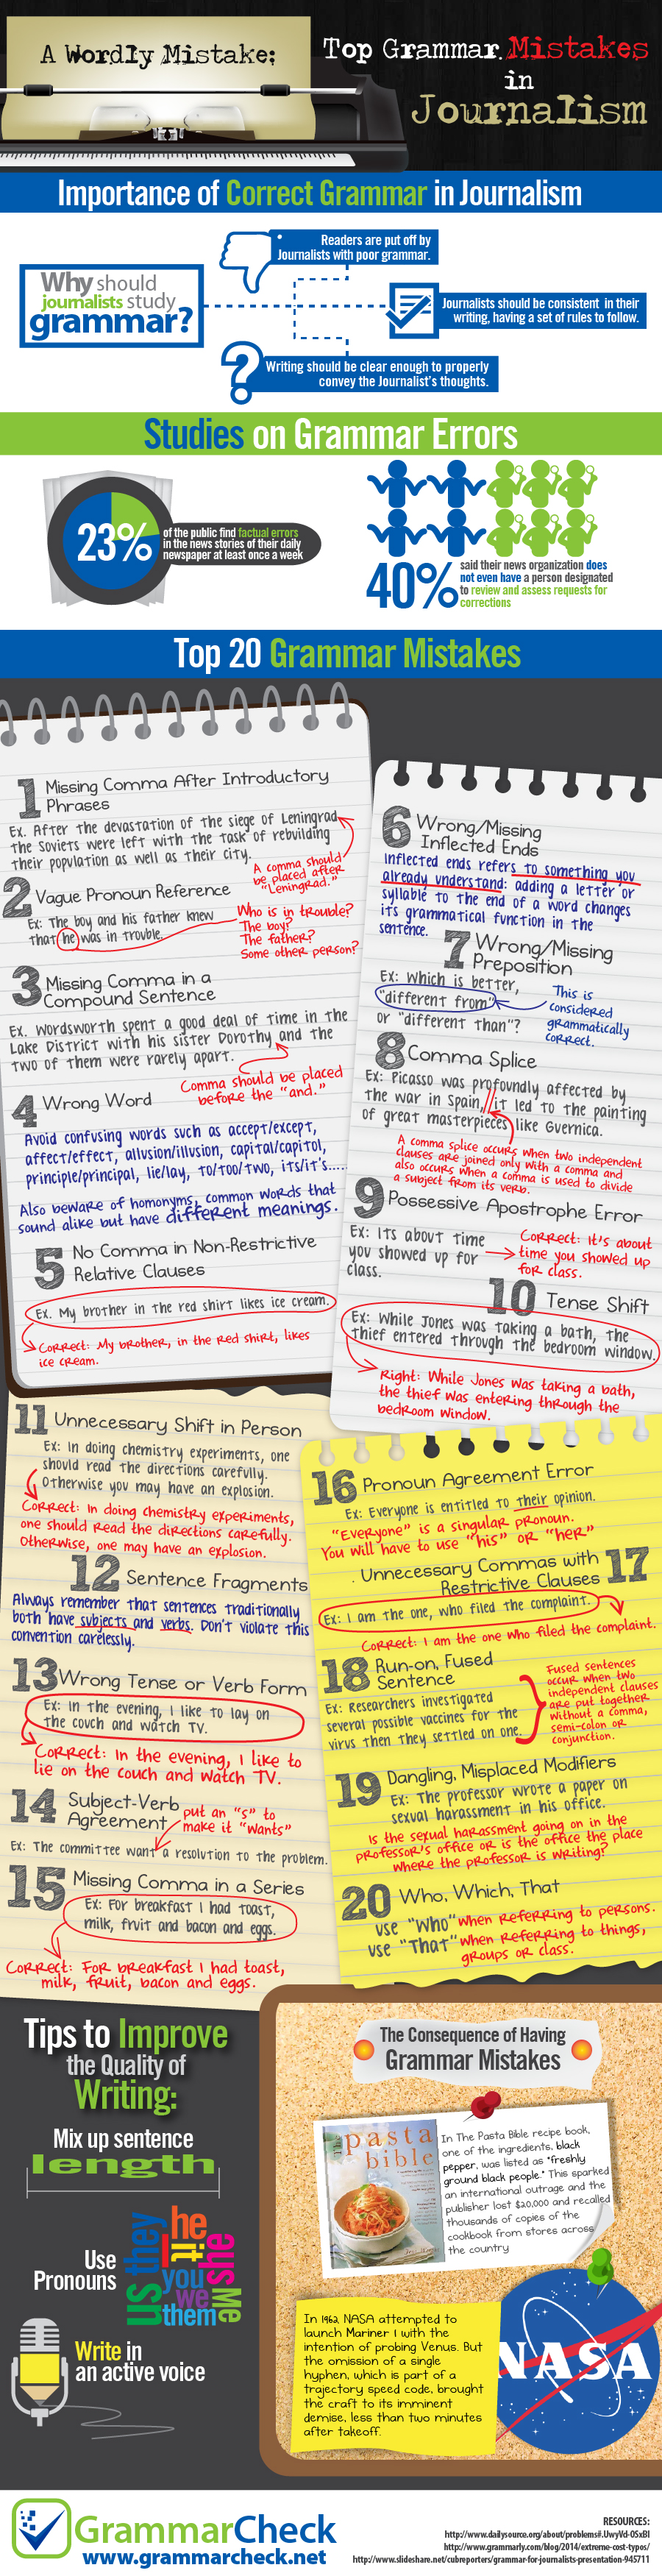 A Wordly Mistake:
Top Grammar Mistakes
in
Journalism
Importance of Correct Grammar in Journalism
Why should
journalists study
grammar?
Readers are put off by
Journalists with poor grammar.
Journalists should be consistent in their
writing, having a set of rules to follow.
Writing should be clear enough to properly
convey the Journalist's thoughts.
Studies on Grammar Errors
23%
of the public find factual errors
in the news stories of their daily
newspaper at least once a week
40%
said their news organization does
not even have a person designated
to review and assess requests for
corrections
Top 20 Grammar Mistakes
1 Missing Comma After Introductory
Phrases
Ex. After the devastation of the siege of Leningrad
the Soviets were left with the task of rebuilding
their population as well as their city.
A comma should
be placed after
"Leningrad."
2 Vague Pronoun Reference
Ex: The boy and his father knew
that he was in trouble.
Who is in trouble?
The boy?
The father?
Some other person?
3 Missing Comma in a
Compound Sentence
Ex. Wordsworth spent a good deal of time in the
Lake District with his sister Dorothy and the
two of them were rarely apart.
Comma should be placed
before the "and."
4 Wrong Word
Avoid confusing words such as accept/except,
affect/effect, allusion/illusion, capital/capitol,
principle/principal, lie/lay, to/too/two, its/it's.....
Also beware of homonyms, common words that
sound alike but have different meanings.
5 No Comma in Non-Restrictive
Relative Clauses
Ex. My brother in the red shirt likes ice cream.
Correct: My brother, in the red shirt, likes
ice cream.
6 Wrong/Missing
Inflected Ends
Inflected ends refers to something you
already understand: adding a letter or
syllable to the end of a word changes
its grammatical function in the
sentence.
7 Wrong/Missing
Preposition
Ex: Which is better,
"different from"
or "different than"?
This is
considered
grammatically
correct.
8 Comma Splice
Ex: Picasso was profoundly affected by
the war in Spain, it led to the painting
of great masterpieces like Guernica.
A comma splice occurs when two independent
clauses are joined only with a comma and
also occurs when a comma is used to divide
a subject from its verb.
9 Possessive Apostrophe Error
Ex: Its about time
you showed up for
class.
Correct: It's about
time you showed up
for class.
10 Tense Shift
Ex: While Jones was taking a bath, the
thief entered through the bedroom window.
Right: While Jones was taking a bath,
the thief was entering through the
bedroom window.
11 Unnecessary Shift in Person
Ex: In doing chemistry experiments, one
should read the directions carefully.
Otherwise you may have an explosion.
Correct: In doing chemistry experiments,
one should read the directions carefully.
Otherwise, one may have an explosion.
12 Sentence Fragments
Always remember that sentences traditionally
both have subjects and verbs. Don't violate this
convention carelessly.
13 Wrong Tense or Verb Form
Ex: In the evening, I like to lay on
the couch and watch TV.
Correct: In the evening, I like to
lie on the couch and watch TV.
14 Subject-Verb
Agreement
put an "s" to
make it "wants"
Ex: The committee want a resolution to the problem.
15 Missing Comma in a Series
Ex: For breakfast I had toast,
milk, fruit and bacon and eggs.
Correct: For breakfast I had toast,
milk, fruit, bacon and eggs.
16 Pronoun Agreement Error
Ex: Everyone is entitled to their opinion.
"Everyone" is a singular pronoun.
You will have to use "his" or "her"
Unnecessary Commas with 17
Restrictive Clauses
Ex: I am the one, who filed the complaint.
Correct: I am the one who filed the complaint.
18 Run-on, Fused
Sentence
Ex: Researchers investigated
several possible vaccines for the
virus then they settled on one.
Fused sentences
occur when two
independent clauses
are put together
without a comma,
semi-colon or
conjunction.
19 Dangling, Misplaced Modifiers
Ex: The professor wrote a paper on
sexual harassment in his office.
Is the sexual harassment going on in the
professor's office or is the office the place
where the professor is writing?
20 Who, Which, That
use "Who" when referring to persons.
use "That" when referring to things,
groups or class.
Tips to Improve
the Quality of
Writing:
Mix up sentence
length
Use
Pronouns
they
he
it
she
us
you
we
me
them
Write in
an active voice
The Consequence of Having
Grammar Mistakes
the
pasta
bible
In The Pasta Bible recipe book,
one of the ingredients, black
pepper, was listed as "freshly
ground black people." This sparked
an international outrage and the
publisher lost $20,000 and recalled
thousands of copies of the
cookbook from stores across
the country
In 1962, NASA attempted to
launch Mariner 1 with the
intention of probing Venus. But
the omission of a single
hyphen, which is part of a
trajectory speed code, brought
the craft to its imminent
demise, less than two minutes
after takeoff.
NASA
GrammarCheck
www.grammarcheck.net
RESOURCES:
http://www.dailysource.org/about/problems#.UwyVd-OSxBI
http://www.grammarly.com/blog/2014/extreme-cost-typos/
http://www.slideshare.net/cubreporters/grammar-for-journalists-presentation-945711